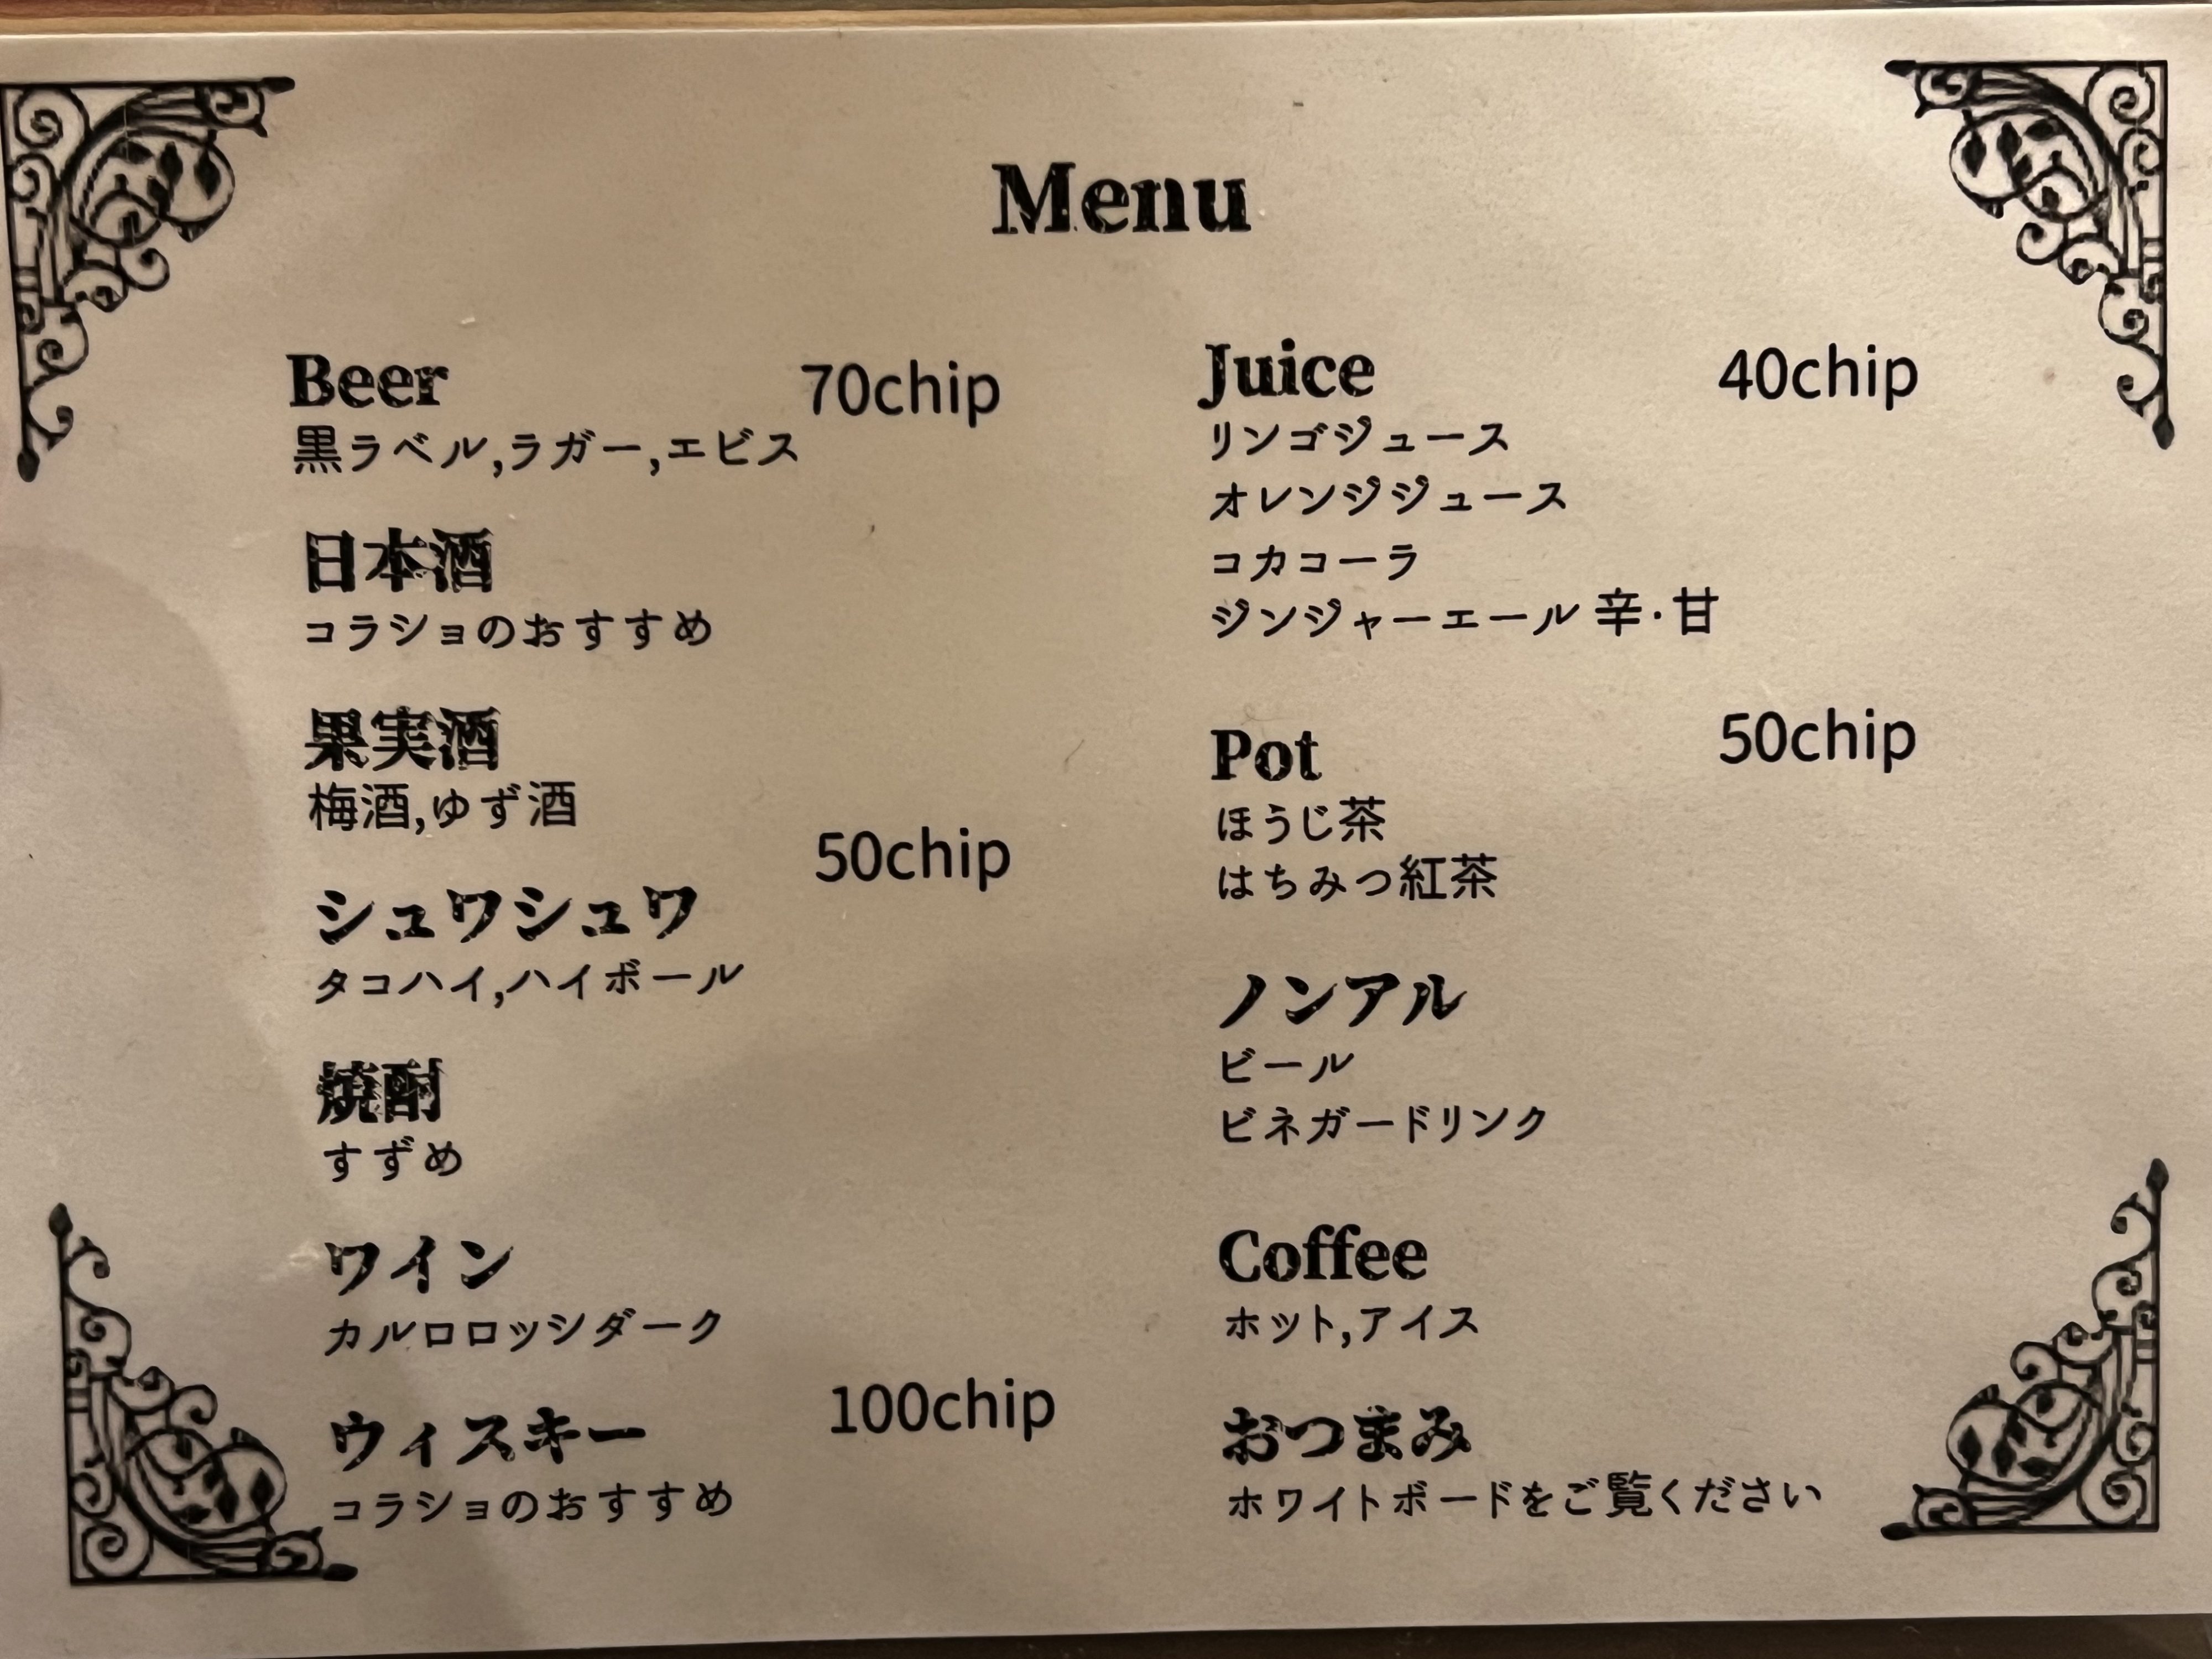 Menu
Beer 70chip
黒ラベル,ラガー,エビス
日本酒
コラショのおすすめ
果実酒
梅酒,ゆず酒
50chip
シュワシュワ
タコハイ,ハイボール
焼酎
すずめ
ワイン
カルロロッシダーク
ウィスキー 100chip
コラショのおすすめ
Juice 40chip
リンゴジュース
オレンジジュース
コカコーラ
ジンジャーエール 辛・甘
Pot 50chip
ほうじ茶
はちみつ紅茶
ノンアル
ビール
ビネガードリンク
Coffee
ホット,アイス
おつまみ
ホワイトボードをご覧ください